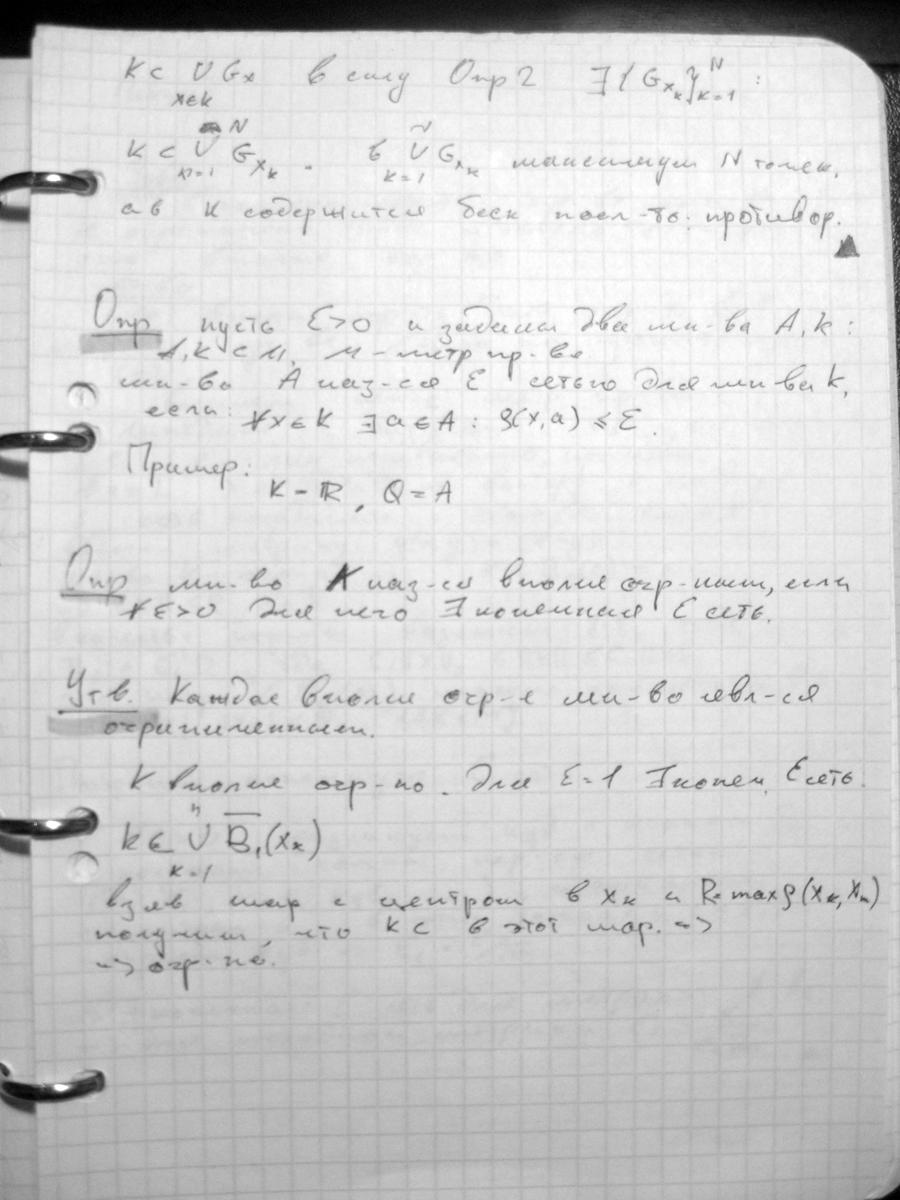 K ⊂ ∪ G_x в силу Опр 2 ∃ {G_{x_k}}_{k=1}^N :
x∈K
K ⊂ ∪_{k=1}^N G_{x_k} . в ∪_{k=1}^N G_{x_k} максимум N точек,
а в K содержится беск посл-ть: противор.
▲
Опр пусть ε>0 и заданы два мн-ва A, K :
A, K ⊂ M, M - метр пр-во
мн-во A наз-ся ε сетью для мн-ва K,
если: ∀x∈K ∃a∈A : ρ(x,a) ≤ ε.
Пример:
K = ℝ, Q = A
Опр мн-во K наз-ся вполне огр-ным, если
∀ε>0 для него ∃ конечная ε сеть.
Утв. Каждое вполне огр-е мн-во явл-ся
ограниченным.
K вполне огр-но. Для ε=1 ∃ конеч. ε сеть.
K ∈ ∪_{k=1}^n \overline{B}_1(x_k)
взяв шар с центром в x_k и R = max ρ(x_k, x_n)
получим, что K ⊂ в этот шар. =>
=> огр-но.